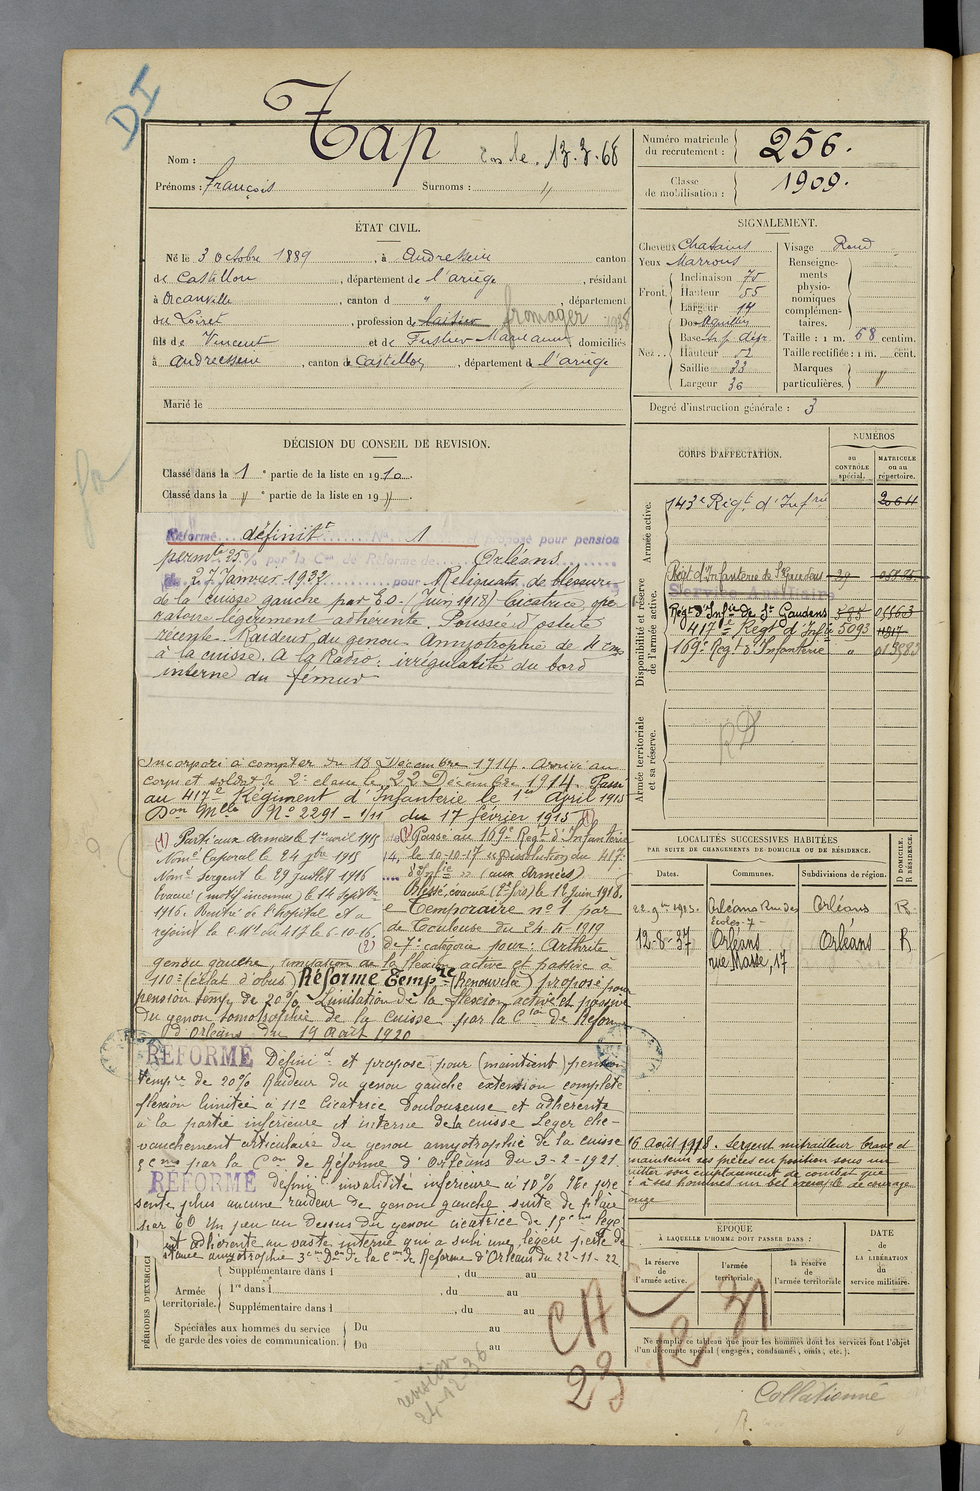 DI
Tap
Nom :
le 13.3.68
Prénoms : François
Surnoms : "
Numéro matricule du recrutement : 256.
Classe de mobilisation : 1909.
ÉTAT CIVIL.
Né le 3 Octobre 1889, à Andressein canton
de Castillon, département de l'ariège, résidant
à Orcanville, canton d ", département
du Loiret, profession de laitier fromager
fils de Vincent et de Marianne domiciliés
à Andressein, canton de Castillon, département de l'ariège
Marié le
SIGNALEMENT.
Cheveux Chatains
Yeux Marrons
Front. Inclinaison 75
Hauteur 55
Largeur 14
Nez.. Dos Aquilin
Base
Hauteur 52
Saillie 33
Largeur 36
Visage Rond
Renseignements physionomiques complémentaires.
Taille : 1 m. 68 centim.
Taille rectifiée : 1 m. cent.
Marques particulières. "
Degré d'instruction générale : 3
DÉCISION DU CONSEIL DE REVISION.
Classé dans la 1e partie de la liste en 1910.
Classé dans la " e partie de la liste en 19 ".
Réformé définitt No 1 et proposé pour pension
permte 25 % par la Con de Réforme de Orléans
du 27 Janvier 1932 pour Reliquats de blessure
de la cuisse gauche par E.O. (Juin 1918) Cicatrice opé
ratoire légèrement adhérente. Poussée d'ostéite
récente. Raideur du genou Amyotrophie de 4 cms
à la cuisse. A la Radio: irrégularité du bord
interne du fémur
Incorporé à compter du 18 Décembre 1914. Arrivé au
corps et soldat de 2e classe le 22 Décembre 1914. Passé
au 417e Régiment d'Infanterie le 1er Avril 1915
Don Mlle No 2291-1/11 du 17 février 1915 (1)
(1) Parti aux armées le 1er avril 1915
Nomé Caporal le 21 9bre 1915
Nomé Sergent le 29 Juillet 1916
Evacué (motif inconnu) le 14 Septbre
1916. Rentré de l'hôpital et a
rejoint la C.M. du 417 le 6-10-16.
(2)
(2) Passé au 169e Regt d'Infanterie
le 10-10-17 Dissolution du 417e
d'Infie (aux armées)
Blessé, évacué (2e fois) le 12 Juin 1918.
Temporaire no 1 par
de Toulouse du 24-4-1919
de 7e catégorie pour : Arthrite
genou gauche, limitation de la flexion active et passive à
110° (éclat d'obus) Réformé Tempre (Renouvelé) proposé pour
pension temp. de 20% Limitation de la flexion active et passive
du genou amyotrophie de la cuisse par la Con de Réforme
d'Orléans du 19 Août 1920
RÉFORMÉ Définitt et proposé pour (maintient) pension
tempre de 20% Raideur du genou gauche extension complète
flexion limitée à 110 Cicatrice douloureuse et adhérente
à la partie inférieure et interne de la cuisse Léger che-
vauchement articulaire du genou amyotrophie de la cuisse
3cms par la Con de Réforme d'Orléans du 3-2-1921.
RÉFORMÉ défini invalidité inférieure à 10% Ne pré
sente plus aucune raideur de genou gauche suite de plaie
par EO Un peu au dessus du genou cicatrice de 15cm lége
adhérente au vaste interne qui a subi une légère perte de
amyotrophie 3cm Don de la Con de Réforme d'Orléans du 22-11-22
PÉRIODES D'EXERCICE
Armée territoriale.
Supplémentaire dans l , du au
1re dans l , du au
Supplémentaire dans l , du au
Spéciales aux hommes du service de garde des voies de communication.
Du au
Du au
CORPS D'AFFECTATION.
NUMÉROS
au CONTRÔLE spécial.
MATRICULE ou au répertoire.
Armée active.
143e Régt d'Infrie 2064
Disponibilité et réserve de l'armée active.
Régt d'Infanterie de St Gaudens 39
Service Auxiliaire
Régt d'Infie de St Gaudens 585 05563
417e Régt d'Infie 5093 4817
169e Régt d'Infanterie "
Armée territoriale et sa réserve.
RD
LOCALITÉS SUCCESSIVES HABITÉES
PAR SUITE DE CHANGEMENTS DE DOMICILE OU DE RÉSIDENCE.
Dates. Communes. Subdivisions de région. D DOMICILE. R RÉSIDENCE.
Orléans Rue des Ecoles -7- Orléans R
12-8-37 Orléans rue Masse, 17 Orléans R
16 Août 1918. Sergent mitrailleur brave et
maintenu ses pièces en position sous un
son emplacement de combat que
à ses hommes un bel exemple de courage
ÉPOQUE
À LAQUELLE L'HOMME DOIT PASSER DANS :
la réserve de l'armée active.
l'armée territoriale.
la réserve de l'armée territoriale
DATE de LA LIBÉRATION du service militaire.
Ne remplir ce tableau que pour les hommes dont les services font l'objet
d'un décompte spécial (engagés, condamnés, omis, etc.).
CAC
23 12 31
revision
24-12-36
Collationné